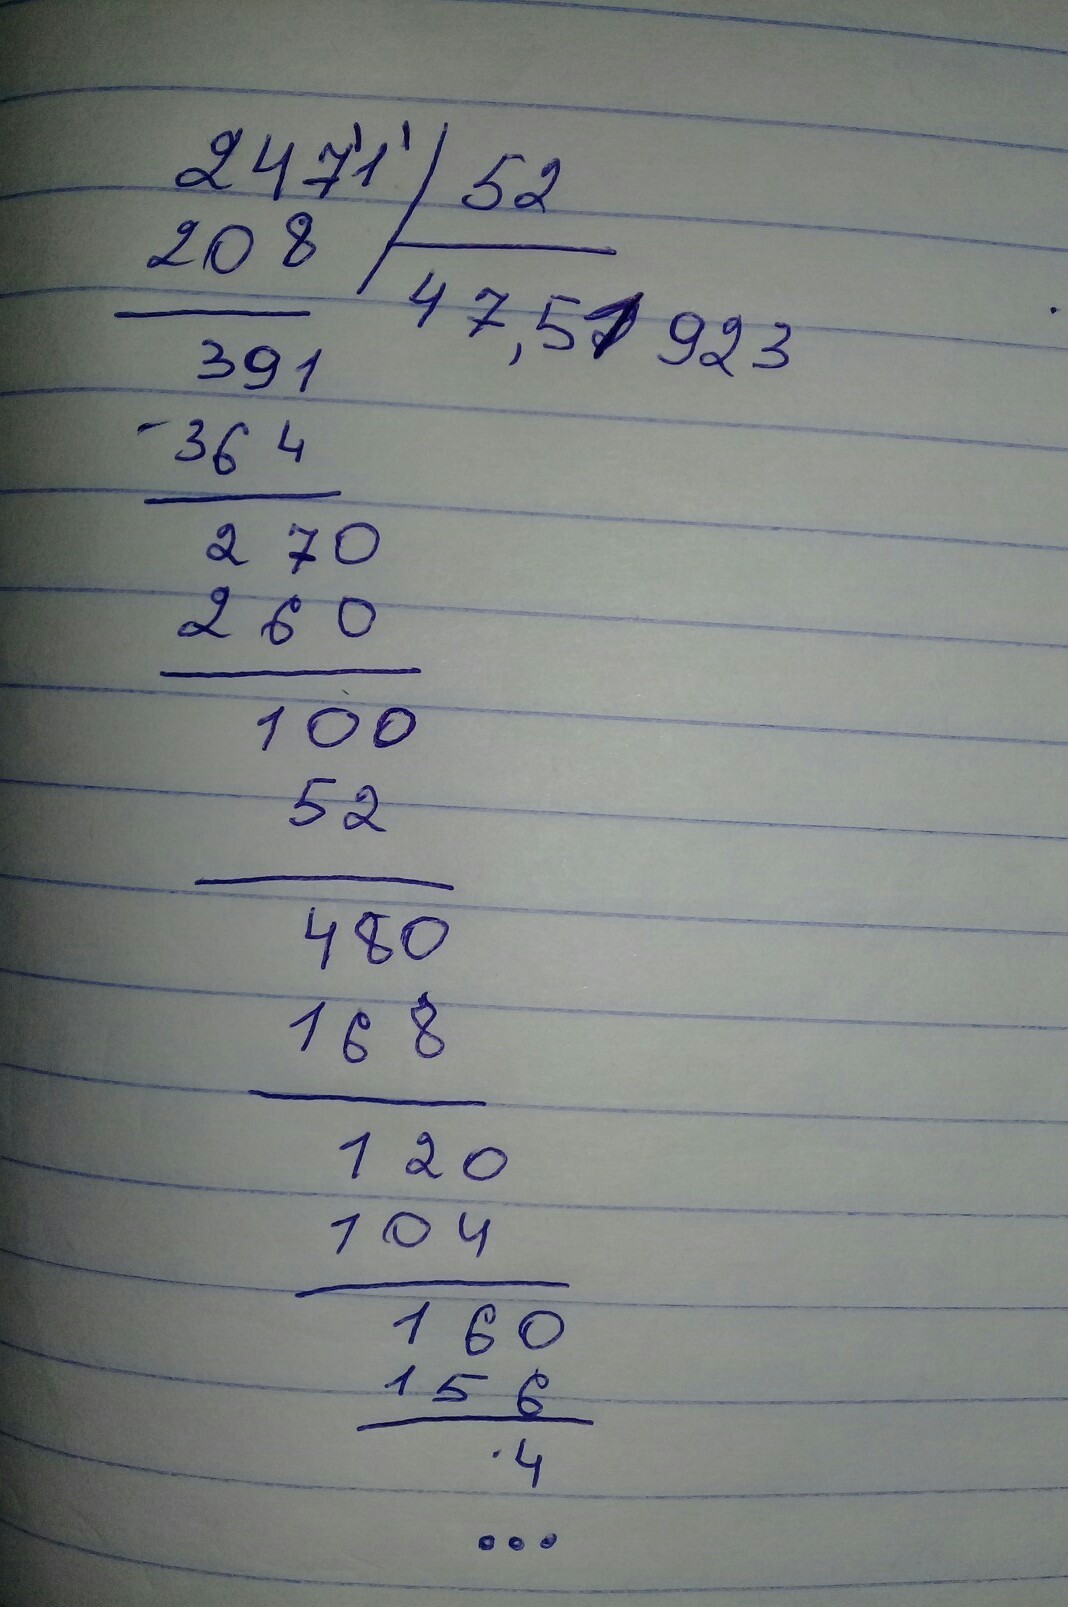 2471 52
208
47,51923
391
-364
270
260
100
52
480
168
120
104
160
156
4
...